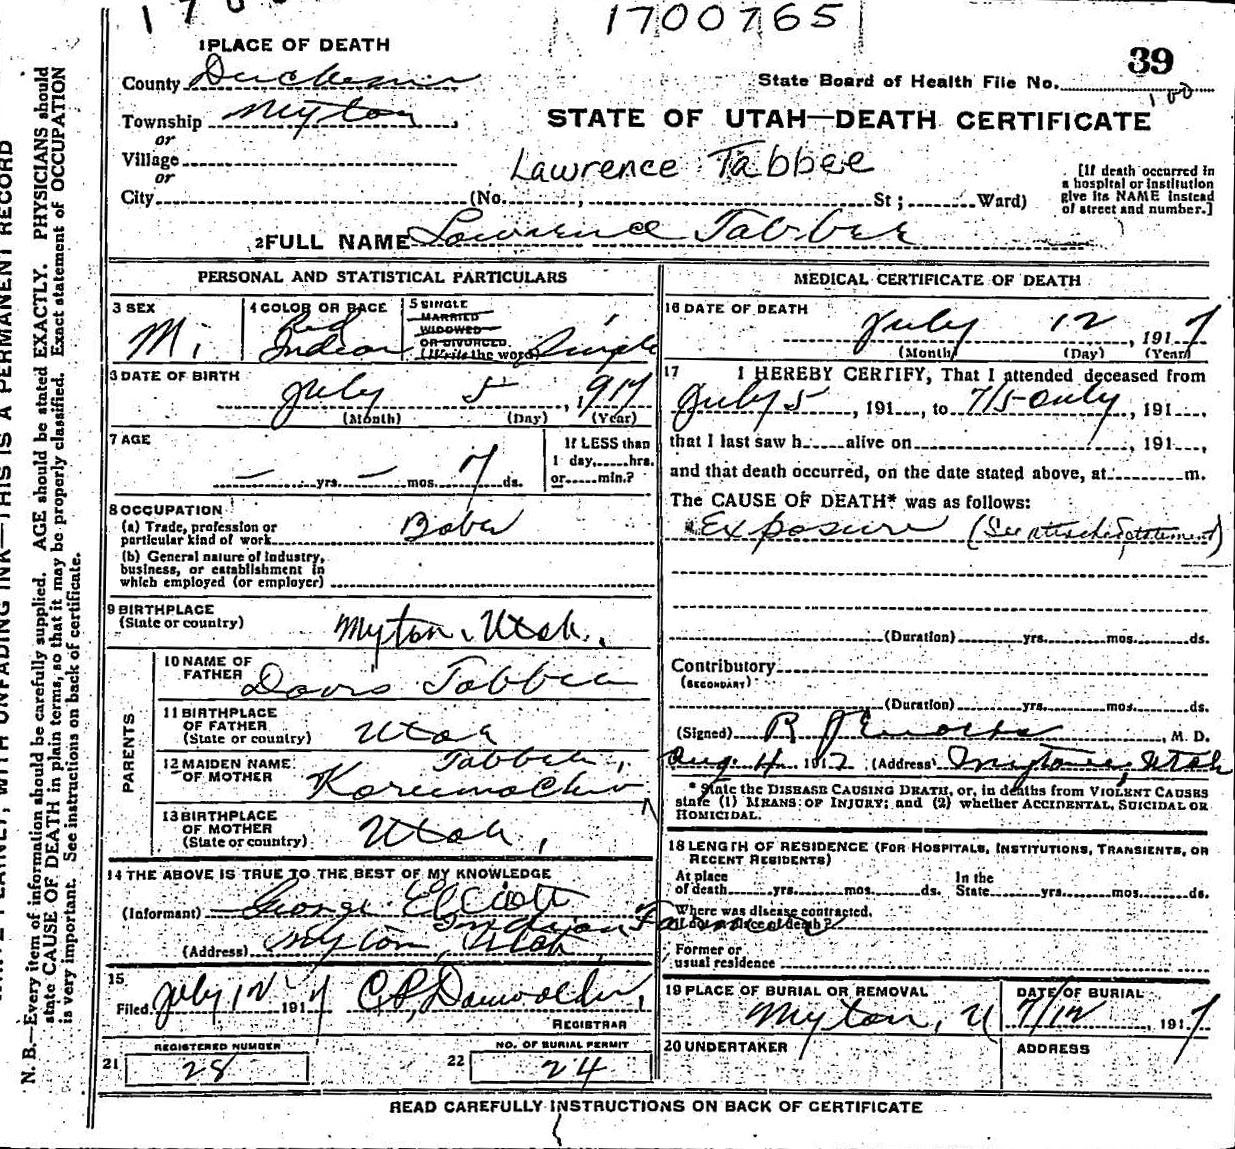 1700765
39
1 PLACE OF DEATH
County Duchesne
State Board of Health File No.
100
Township Myton
or
STATE OF UTAH—DEATH CERTIFICATE
Village
or
Lawrence Tabbee
City (No. ; St ; Ward)
[If death occurred in
a hospital or institution
give its NAME instead
of street and number.]
2 FULL NAME Lawrence Tabbee
PERSONAL AND STATISTICAL PARTICULARS
3 SEX
M.
4 COLOR OR RACE
Red
Indian
5 SINGLE
MARRIED
WIDOWED
OR DIVORCED
(Write the word) Single
3 DATE OF BIRTH
July 5, 917
(Month) (Day) (Year)
7 AGE
— yrs. — mos. 7 ds.
If LESS than
1 day, hrs.
or min.?
8 OCCUPATION
(a) Trade, profession or
particular kind of work
(b) General nature of industry,
business, or establishment in
which employed (or employer)
9 BIRTHPLACE
(State or country) Myton, Utah.
PARENTS
10 NAME OF
FATHER
Tabbee
11 BIRTHPLACE
OF FATHER
(State or country) Utah
12 MAIDEN NAME
OF MOTHER
Tabbee,
13 BIRTHPLACE
OF MOTHER
(State or country) Utah,
14 THE ABOVE IS TRUE TO THE BEST OF MY KNOWLEDGE
(Informant) George Elliott
Indian Farmer
(Address) Myton, Utah
15
Filed July 12 1917 C.P.
REGISTRAR
21 REGISTERED NUMBER
28
22 NO. OF BURIAL PERMIT
24
MEDICAL CERTIFICATE OF DEATH
16 DATE OF DEATH
July 12, 1917
(Month) (Day) (Year)
17 I HEREBY CERTIFY, That I attended deceased from
July 5, 191, to 7/5 only, 191,
that I last saw h alive on , 191,
and that death occurred, on the date stated above, at m.
The CAUSE OF DEATH* was as follows:
Exposure (See attached Statement)
(Duration) yrs. mos. ds.
Contributory
(SECONDARY)
(Duration) yrs. mos. ds.
(Signed) R , M. D.
Aug. 4 1917 (Address) Myton, Utah
* State the DISEASE CAUSING DEATH, or, in deaths from VIOLENT CAUSES
state (1) MEANS OF INJURY; and (2) whether ACCIDENTAL, SUICIDAL OR
HOMICIDAL.
18 LENGTH OF RESIDENCE (FOR HOSPITALS, INSTITUTIONS, TRANSIENTS, OR
RECENT RESIDENTS)
At place
of death yrs. mos. ds.
In the
State yrs. mos. ds.
Where was disease contracted,
if not at place of death?
Former or
usual residence
19 PLACE OF BURIAL OR REMOVAL
Myton, U
DATE OF BURIAL
7/12, 1917
20 UNDERTAKER
ADDRESS
READ CAREFULLY INSTRUCTIONS ON BACK OF CERTIFICATE
WITH UNFADING INK—THIS IS A PERMANENT RECORD
N. B.—Every item of information should be carefully supplied. AGE should be stated EXACTLY. PHYSICIANS should
state CAUSE OF DEATH in plain terms, so that it may be properly classified. Exact statement of OCCUPATION
is very important. See instructions on back of certificate.